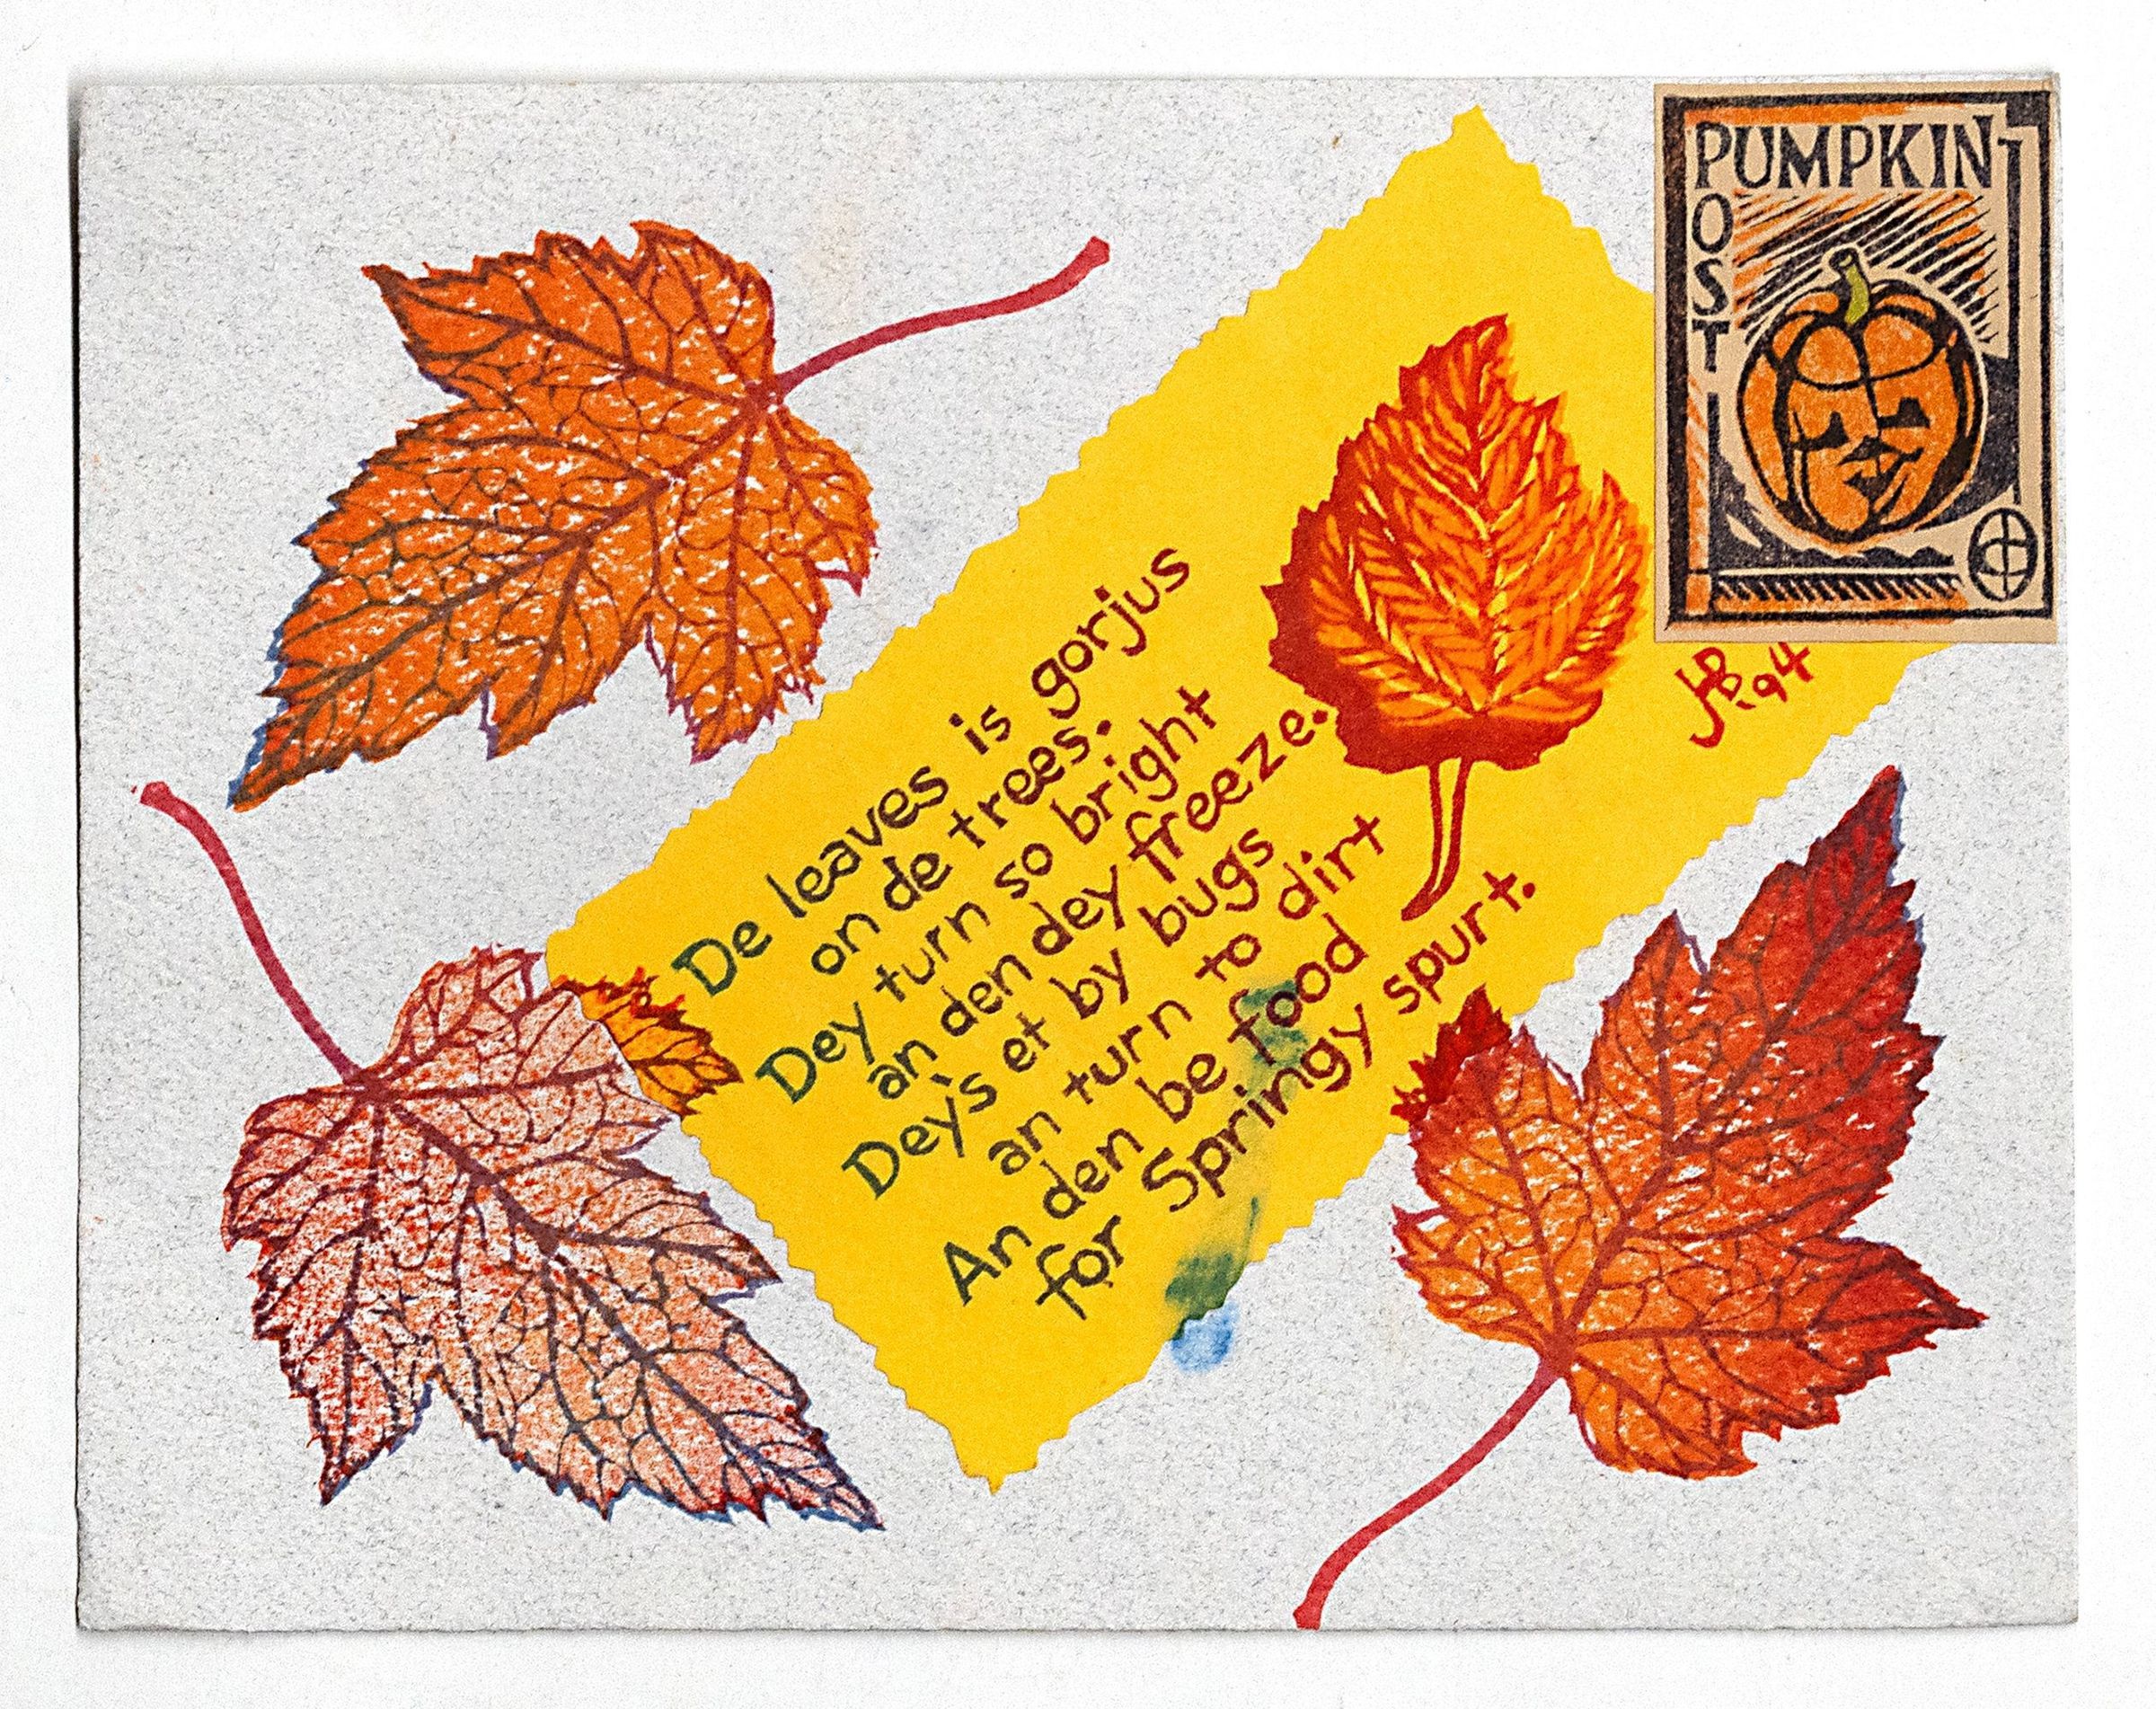 De leaves is gorjus
on de trees.
Dey turn so bright
an den dey freeze.
Dey's et by bugs
an turn to dirt
An den be food
for Springy spurt.
PUMPKIN
POST
JB '94